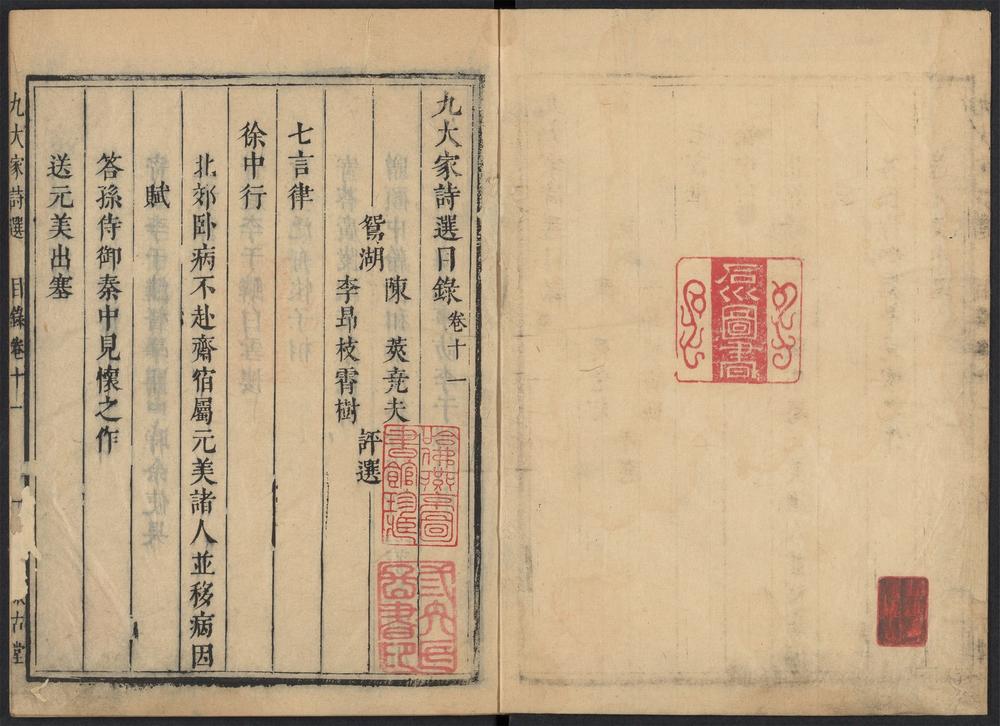 九大家詩選目錄卷十一
鴛湖
陳莢堯夫
李昻枝霄樹
評選
七言律
徐中行
北郊卧病不赴齋宿屬元美諸人並移病因
賦
答孫侍御秦中見懷之作
送元美出塞
九大家詩選
目錄卷十一
古堂
哈佛燕京圖書館珍藏
圖書